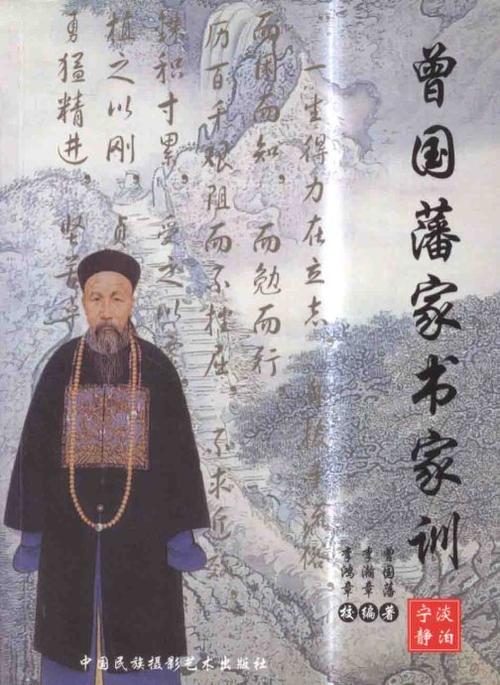 曾国藩家书家训
一生得力在立志，自拔于流俗。
而困而知，而勉而行
历百千艰阻而不挫屈。不求近效，
铢积寸累，受之以
植之以刚，贞
勇猛精进，坚苦卓
曾国藩 著
李瀚章 编
李鸿章 校
淡泊
宁静
中国民族摄影艺术出版社